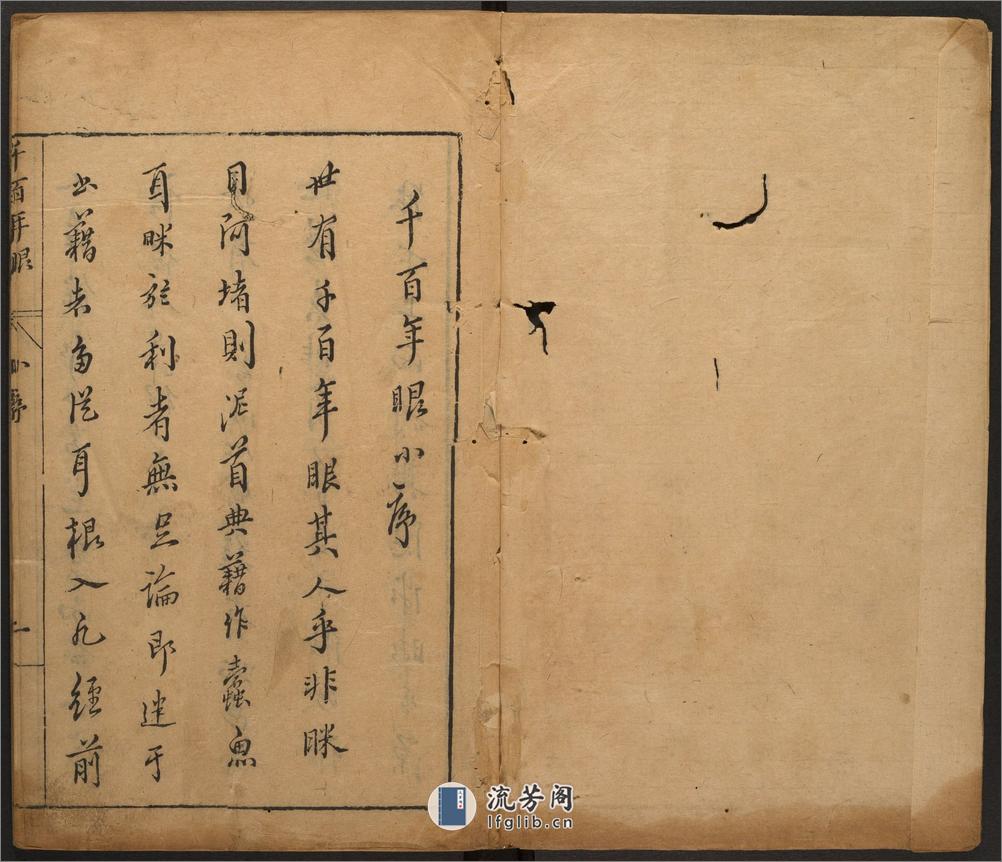 千百年眼小序
世有千百年眼其人乎非眯
目阿堵則泥首典藉作蠹魚
耳眯於利者無足論即迷于
书藉者多從耳根入凡經前
千百年眼
小序
一
流芳阁
lfglib.cn